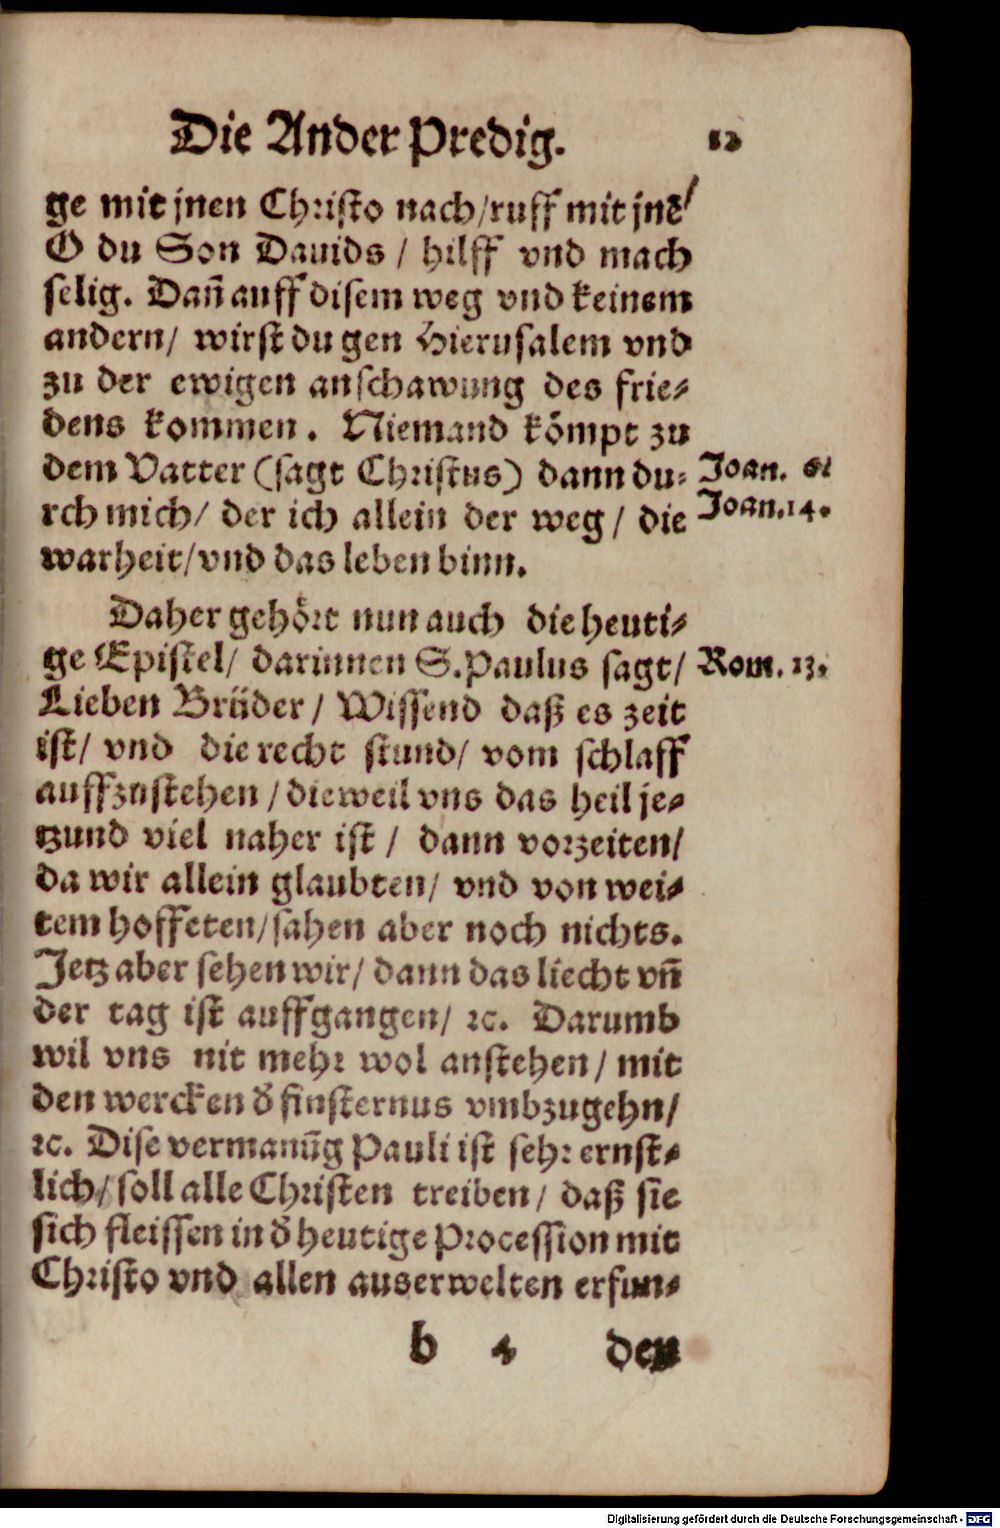 Die Ander Predig. 12
ge mit jnen Christo nach/ruff mit jnẽ/
O du Son Dauids / hilff vnd mach
selig. Dañ auff disem weg vnd keinem
andern/ wirst du gen Hierusalem vnd
zu der ewigen anschawung des frie-
dens kommen. Niemand kömpt zu
dem Vatter (sagt Christus) dann du- Joan. 6.
rch mich/ der ich allein der weg/ die Joan.14.
warheit/vnd das leben binn.
Daher gehört nun auch die heuti-
ge Epistel/ darinnen S.Paulus sagt/ Rom. 13.
Lieben Brüder/ Wissend daß es zeit
ist/ vnd die recht stund/ vom schlaff
auffzustehen/dieweil vns das heil je-
tzund viel naher ist/ dann vorzeiten/
da wir allein glaubten/ vnd von wei-
tem hoffeten/sahen aber noch nichts.
Jetz aber sehen wir/ dann das liecht vñ
der tag ist auffgangen/ ꝛc. Darumb
wil vns nit mehr wol anstehen/ mit
den wercken d̕ finsternus vmbzugehn/
ꝛc. Dise vermanũg Pauli ist sehr ernst-
lich/soll alle Christen treiben/ daß sie
sich fleissen in d̕ heutige Procession mit
Christo vnd allen auserwelten erfun-
b 4 den
Digitalisierung gefördert durch die Deutsche Forschungsgemeinschaft - DFG